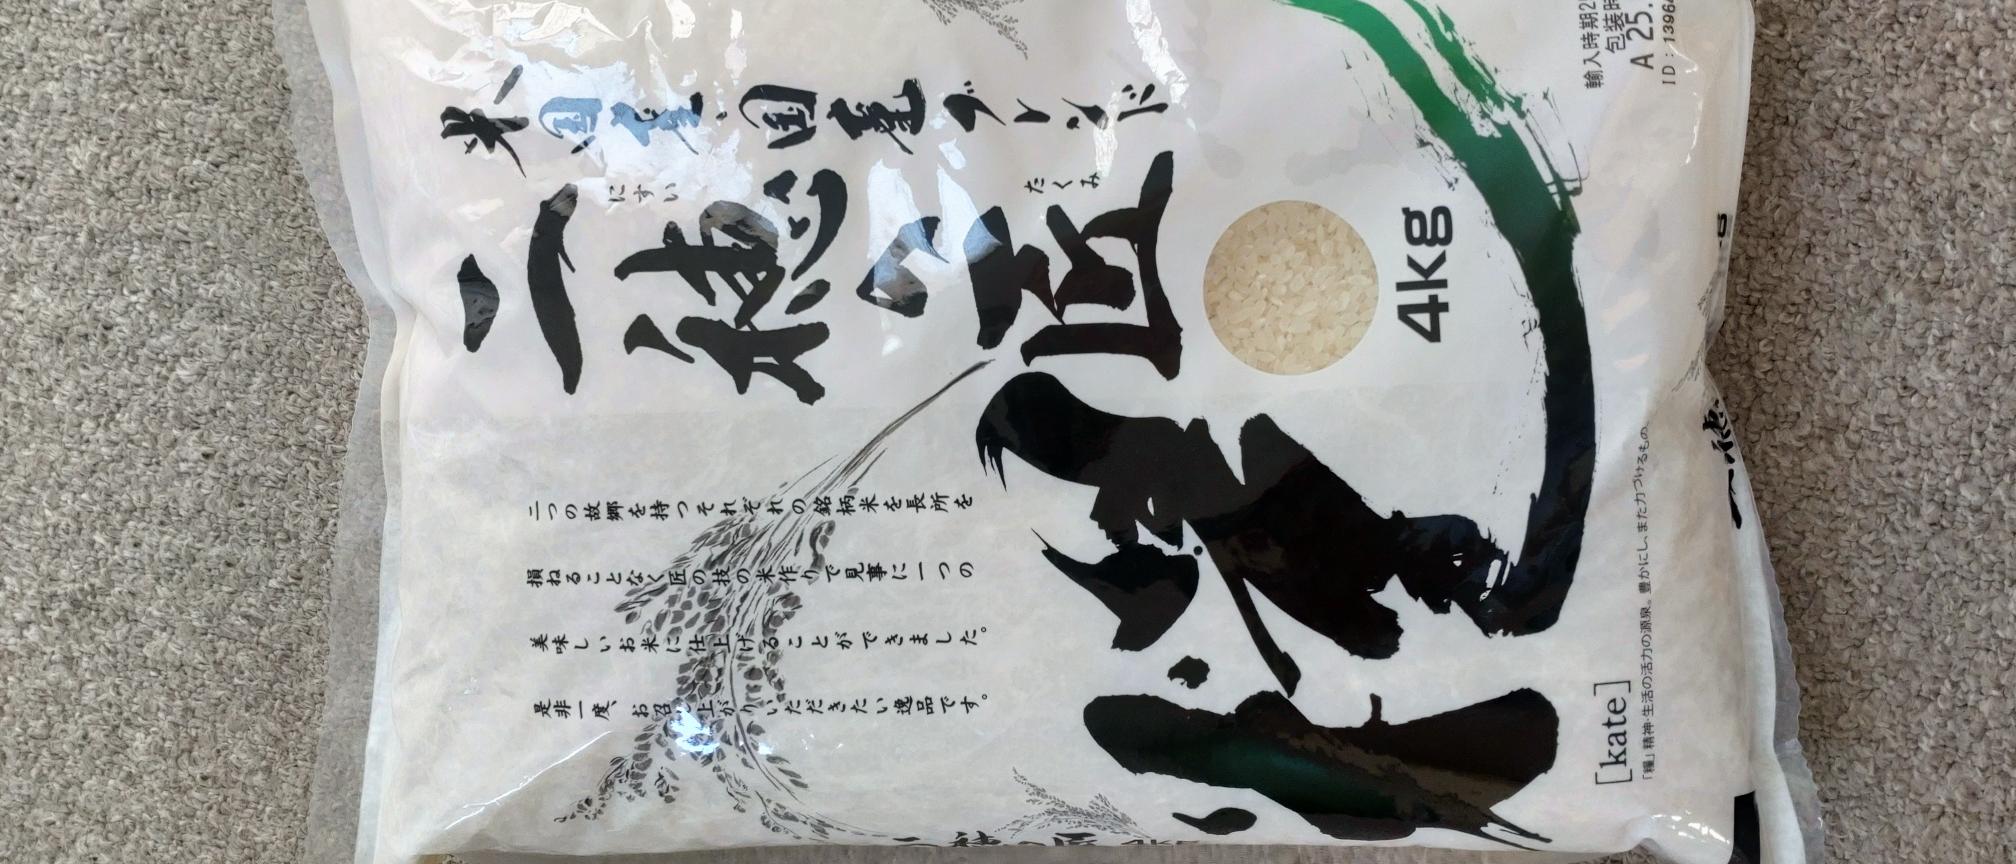 米国産・国産ブレンド
にすい
たくみ
二穂の匠
4kg
二つの故郷を持つそれぞれの銘柄米を長所を
損ねることなく匠の技の米作りで見事に一つの
美味しいお米に仕上げることができました。
是非一度、お召し上がりいただきたい逸品です。
糧
[kate]
「糧」精神・生活の活力の源泉。豊かにし、また力づけるもの。
輸入時期2
包装時
A 25.
ID：1396